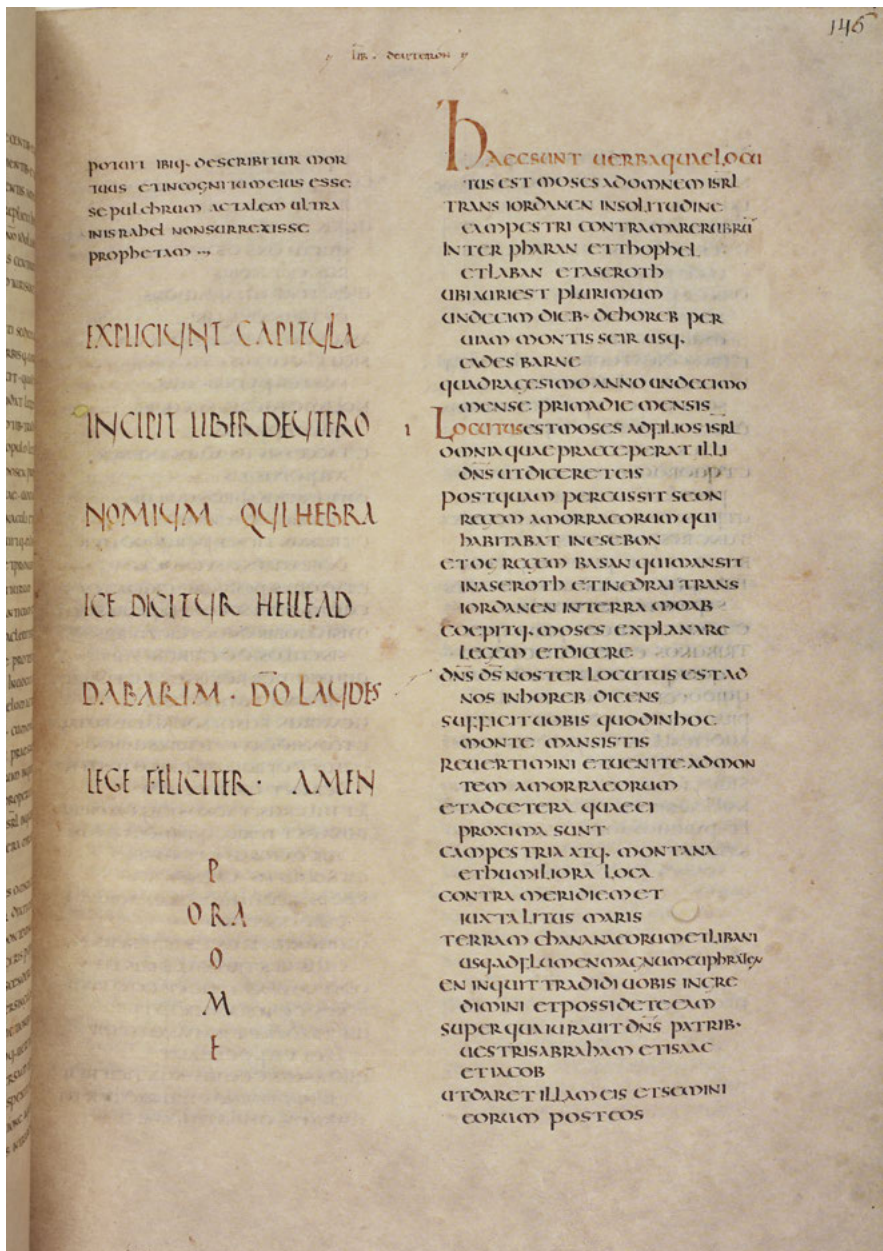 146
LIB · DEUTERON
POTARI IBIQ· DESCRIBITUR MOR
TUUS ET INCOGNITUM EIUS ESSE
SEPULCHRUM AC TALEM ULTRA
IN ISRAHEL NON SURREXISSE
PROPHETAM
EXPLICIUNT CAPITULA
INCIPIT LIBER DEUTERO
NOMIUM QUI HEBRA
ICE DICITUR HELLEAD
DABARIM · DŌ LAUDES
LEGE FELICITER · AMEN
P
ORA
O
M
E
HAEC SUNT UERBA QUAE LOCU
TUS EST MOSES AD OMNEM ISRL
TRANS IORDANEN IN SOLITUDINE
CAMPESTRI CONTRA MARE RUBRŪ
INTER PHARAN ET THOPHEL
ET LABAN ET ASEROTH
UBI AURI EST PLURIMUM
UNDECIM DIEB· DE HOREB PER
UIAM MONTIS SEIR USQ·
CADES BARNE
QUADRAGESIMO ANNO UNDECIMO
MENSE PRIMA DIE MENSIS
I LOCUTUS EST MOSES AD FILIOS ISRL
OMNIA QUAE PRAECEPERAT ILLI
DN̄S UT DICERET EIS
POSTQUAM PERCUSSIT SEON
REGEM AMORRAEORUM QUI
HABITABAT IN ESEBON
ET OG REGEM BASAN QUI MANSIT
IN ASEROTH ET IN EDRAI TRANS
IORDANEN IN TERRA MOAB
COEPITQ· MOSES EXPLANARE
LEGEM ET DICERE
DN̄S DS̄ NOSTER LOCUTUS EST AD
NOS IN HOREB DICENS
SUFFICIT UOBIS QUOD IN HOC
MONTE MANSISTIS
REUERTIMINI ET UENITE AD MON
TEM AMORRAEORUM
ET AD CETERA QUAE EI
PROXIMA SUNT
CAMPESTRIA ATQ· MONTANA
ET HUMILIORA LOCA
CONTRA MERIDIEM ET
IUXTA LITUS MARIS
TERRAM CHANANAEORUM ET LIBANI
USQ· AD FLUMEN MAGNUM EUPHRATEN
EN INQUIT TRADIDI UOBIS INGRE
DIMINI ET POSSIDETE EAM
SUPER QUA IURAUIT DN̄S PATRIB·
UESTRIS ABRAHAM ET ISAAC
ET IACOB
UT DARET ILLAM EIS ET SEMINI
EORUM POST EOS